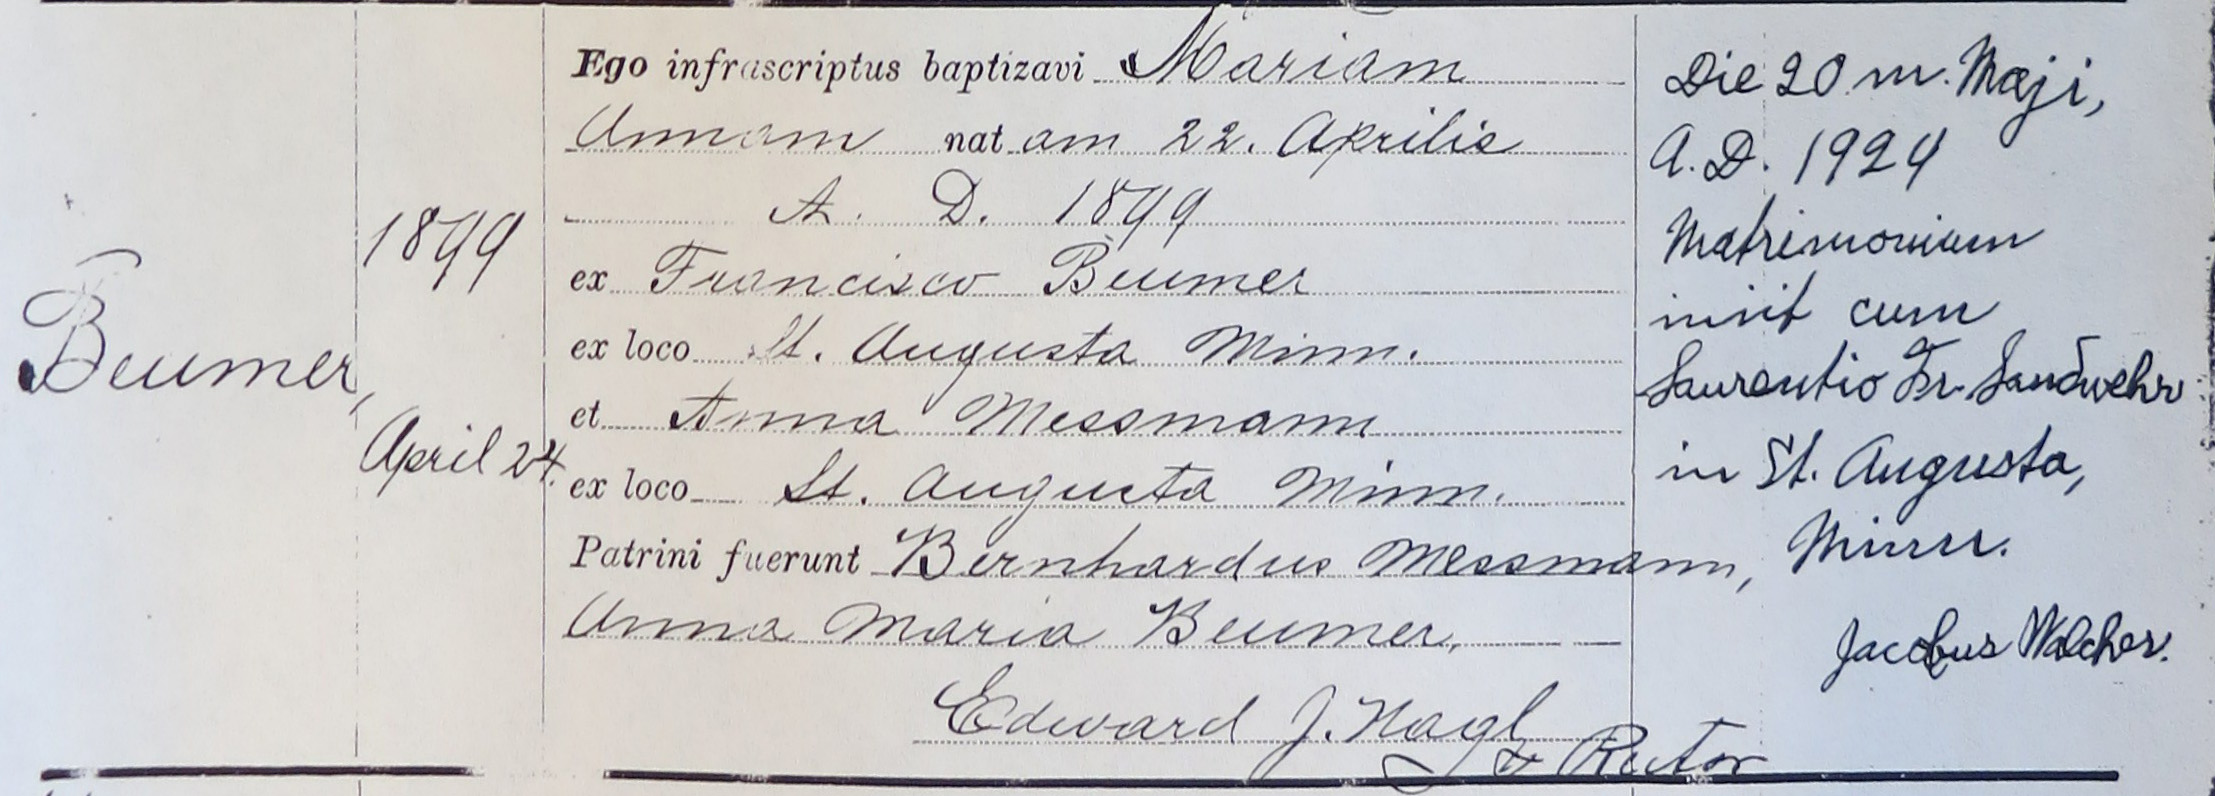 Beumer,
1899
April 24.
Ego infrascriptus baptizavi Mariam
Annam natam 22. Aprilis
A. D. 1899
ex Francisco Beumer
ex loco St. Augusta Minn.
et Anna Messmann
ex loco St. Augusta Minn.
Patrini fuerunt Bernhardus Messmann,
Anna Maria Beumer,
Edward J. Nagl
Rector
Die 20 m. Maji,
A. D. 1924
Matrimonium
inivit cum
Laurentio Fr. Landwehr
in St. Augusta,
Minn.
Jacobus Walcher.